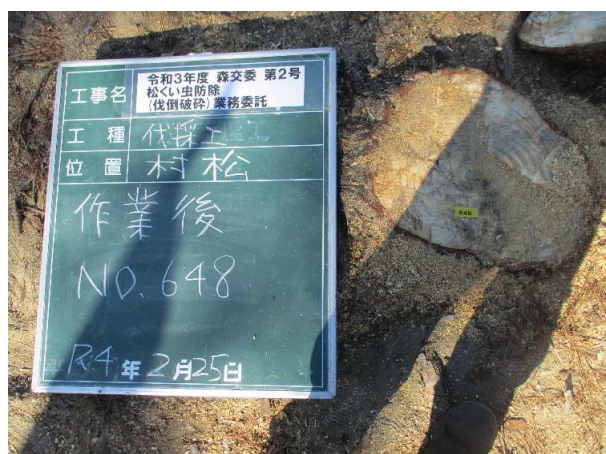 工事名
令和3年度 森交委 第2号
松くい虫防除
(伐倒破砕)業務委託
工種 伐採工
位置 村松
作業後
NO.648
R4年2月25日
648